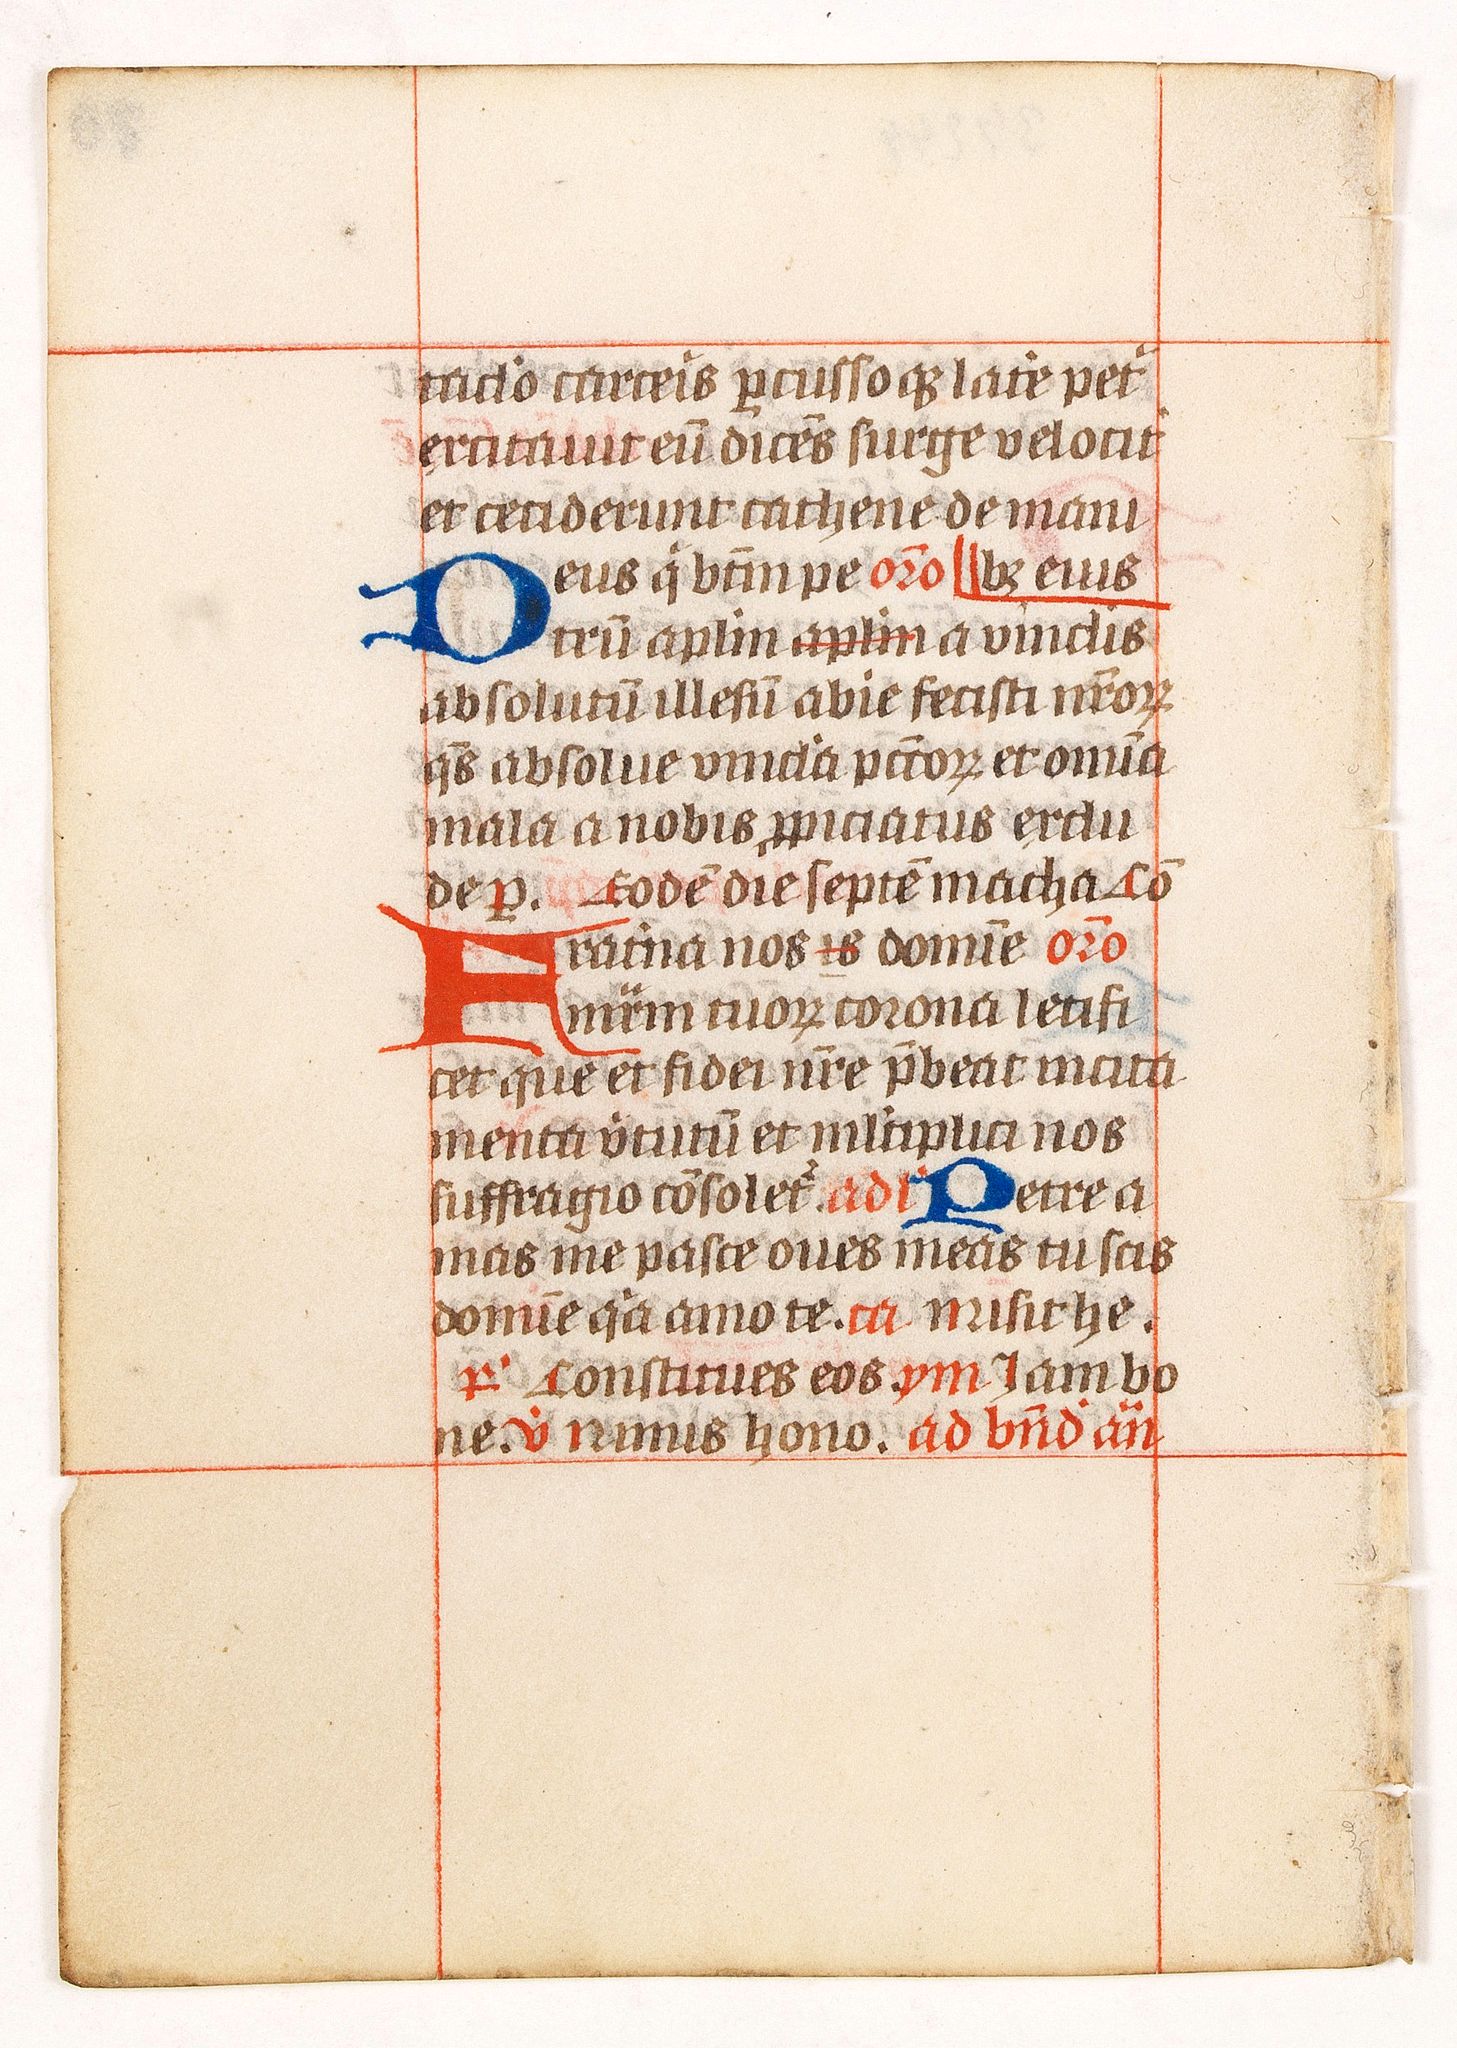 taclo carceis ꝑcussoqꝫ late pet'
excitauit eū dicēs surge velocit'
et ceciderunt cathene de mani
Deus q' btm̄ pe oro bꝫ eius
trū aplm aplm a vinclis
absolutū illesū abie fecisti nr̄oꝝ
qs̄ absolue vincla pctōꝝ et omia
mala a nobis ꝓpiciatus exclu
de ꝑ. Eodē die septē macha Cō
Fratna nos is domīe oro
mr̄m tuoꝝ corona letifi
cet que et fidei nr̄e p̄beat incita
menta v'tutū et mltiplici nos
suffragio cōsolet' ad i' Petre a
mas me pasce oues meas tu scis
domīe q'a amo te. ca misit he.
r' Constitues eos. ym Iam bo
ne. v' Nimis hono. ad bn̄d' an̄